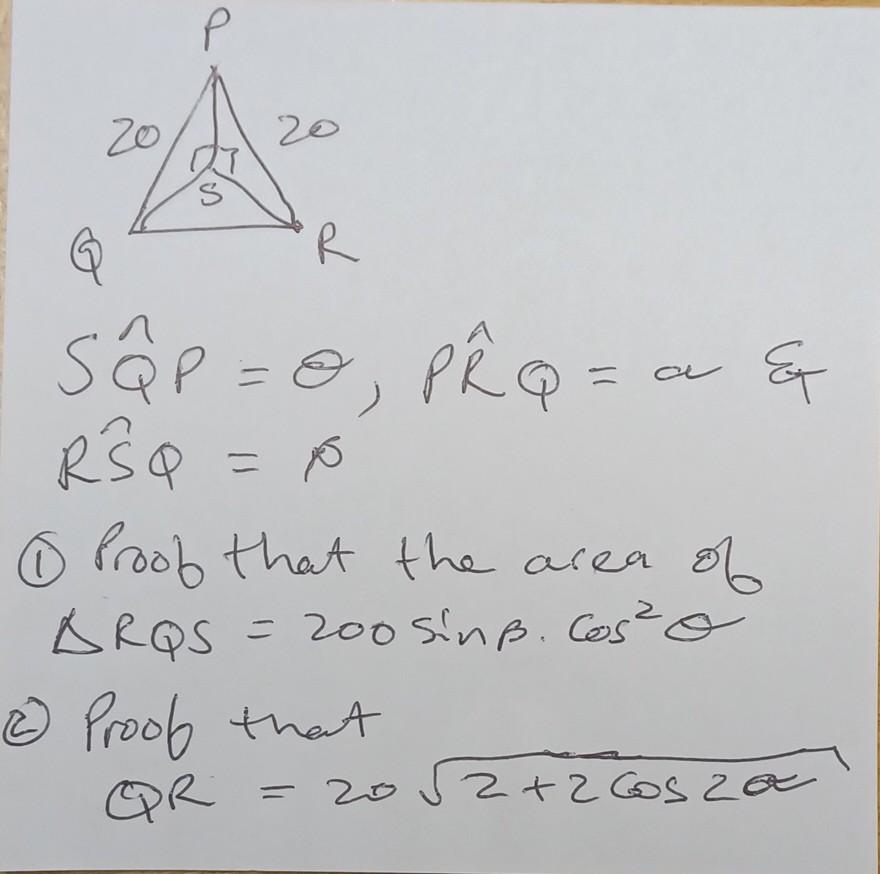 P
20 20
S
Q R
SQ̂P = θ, PR̂Q = α &
RŜQ = β
① Proof that the area of
ΔRQS = 200 sinβ. Cos²θ
② Proof that
QR = 20 √2+2 Cos 2α